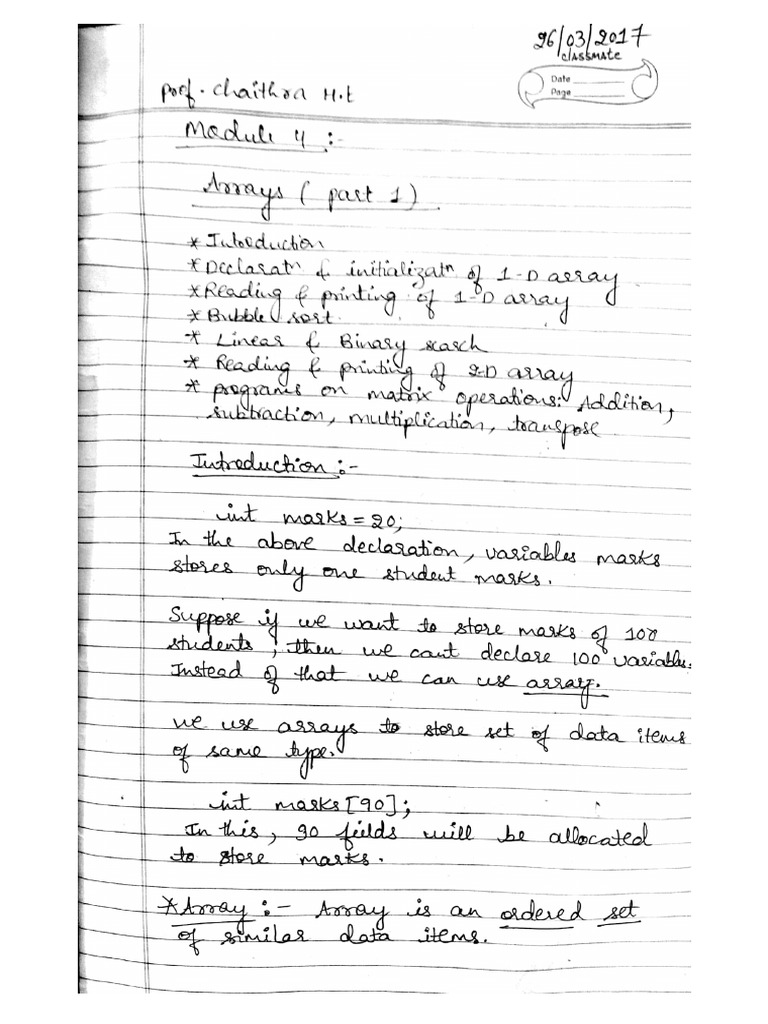 26/03/2017
CLASSMATE
Date
Page
Prof. Chaithra H.t
Module 4 :-
Arrays ( part 1 )
* Introduction
* Declaratn & initializatn of 1-D array
* Reading & printing of 1-D array
* Bubble sort.
* Linear & Binary search
* Reading & printing of 2-D array
* programs on matrix operations: Addition,
subtraction, multiplication, transpose
Introduction :-
int marks = 20;
In the above declaration, variables marks
stores only one student marks.
Suppose if we want to store marks of 100
students, then we cant declare 100 variables.
Instead of that we can use array.
We use arrays to store set of data items
of same type.
int marks [90];
In this, 90 fields will be allocated
to store marks.
* Array :- Array is an ordered set
of similar data items.